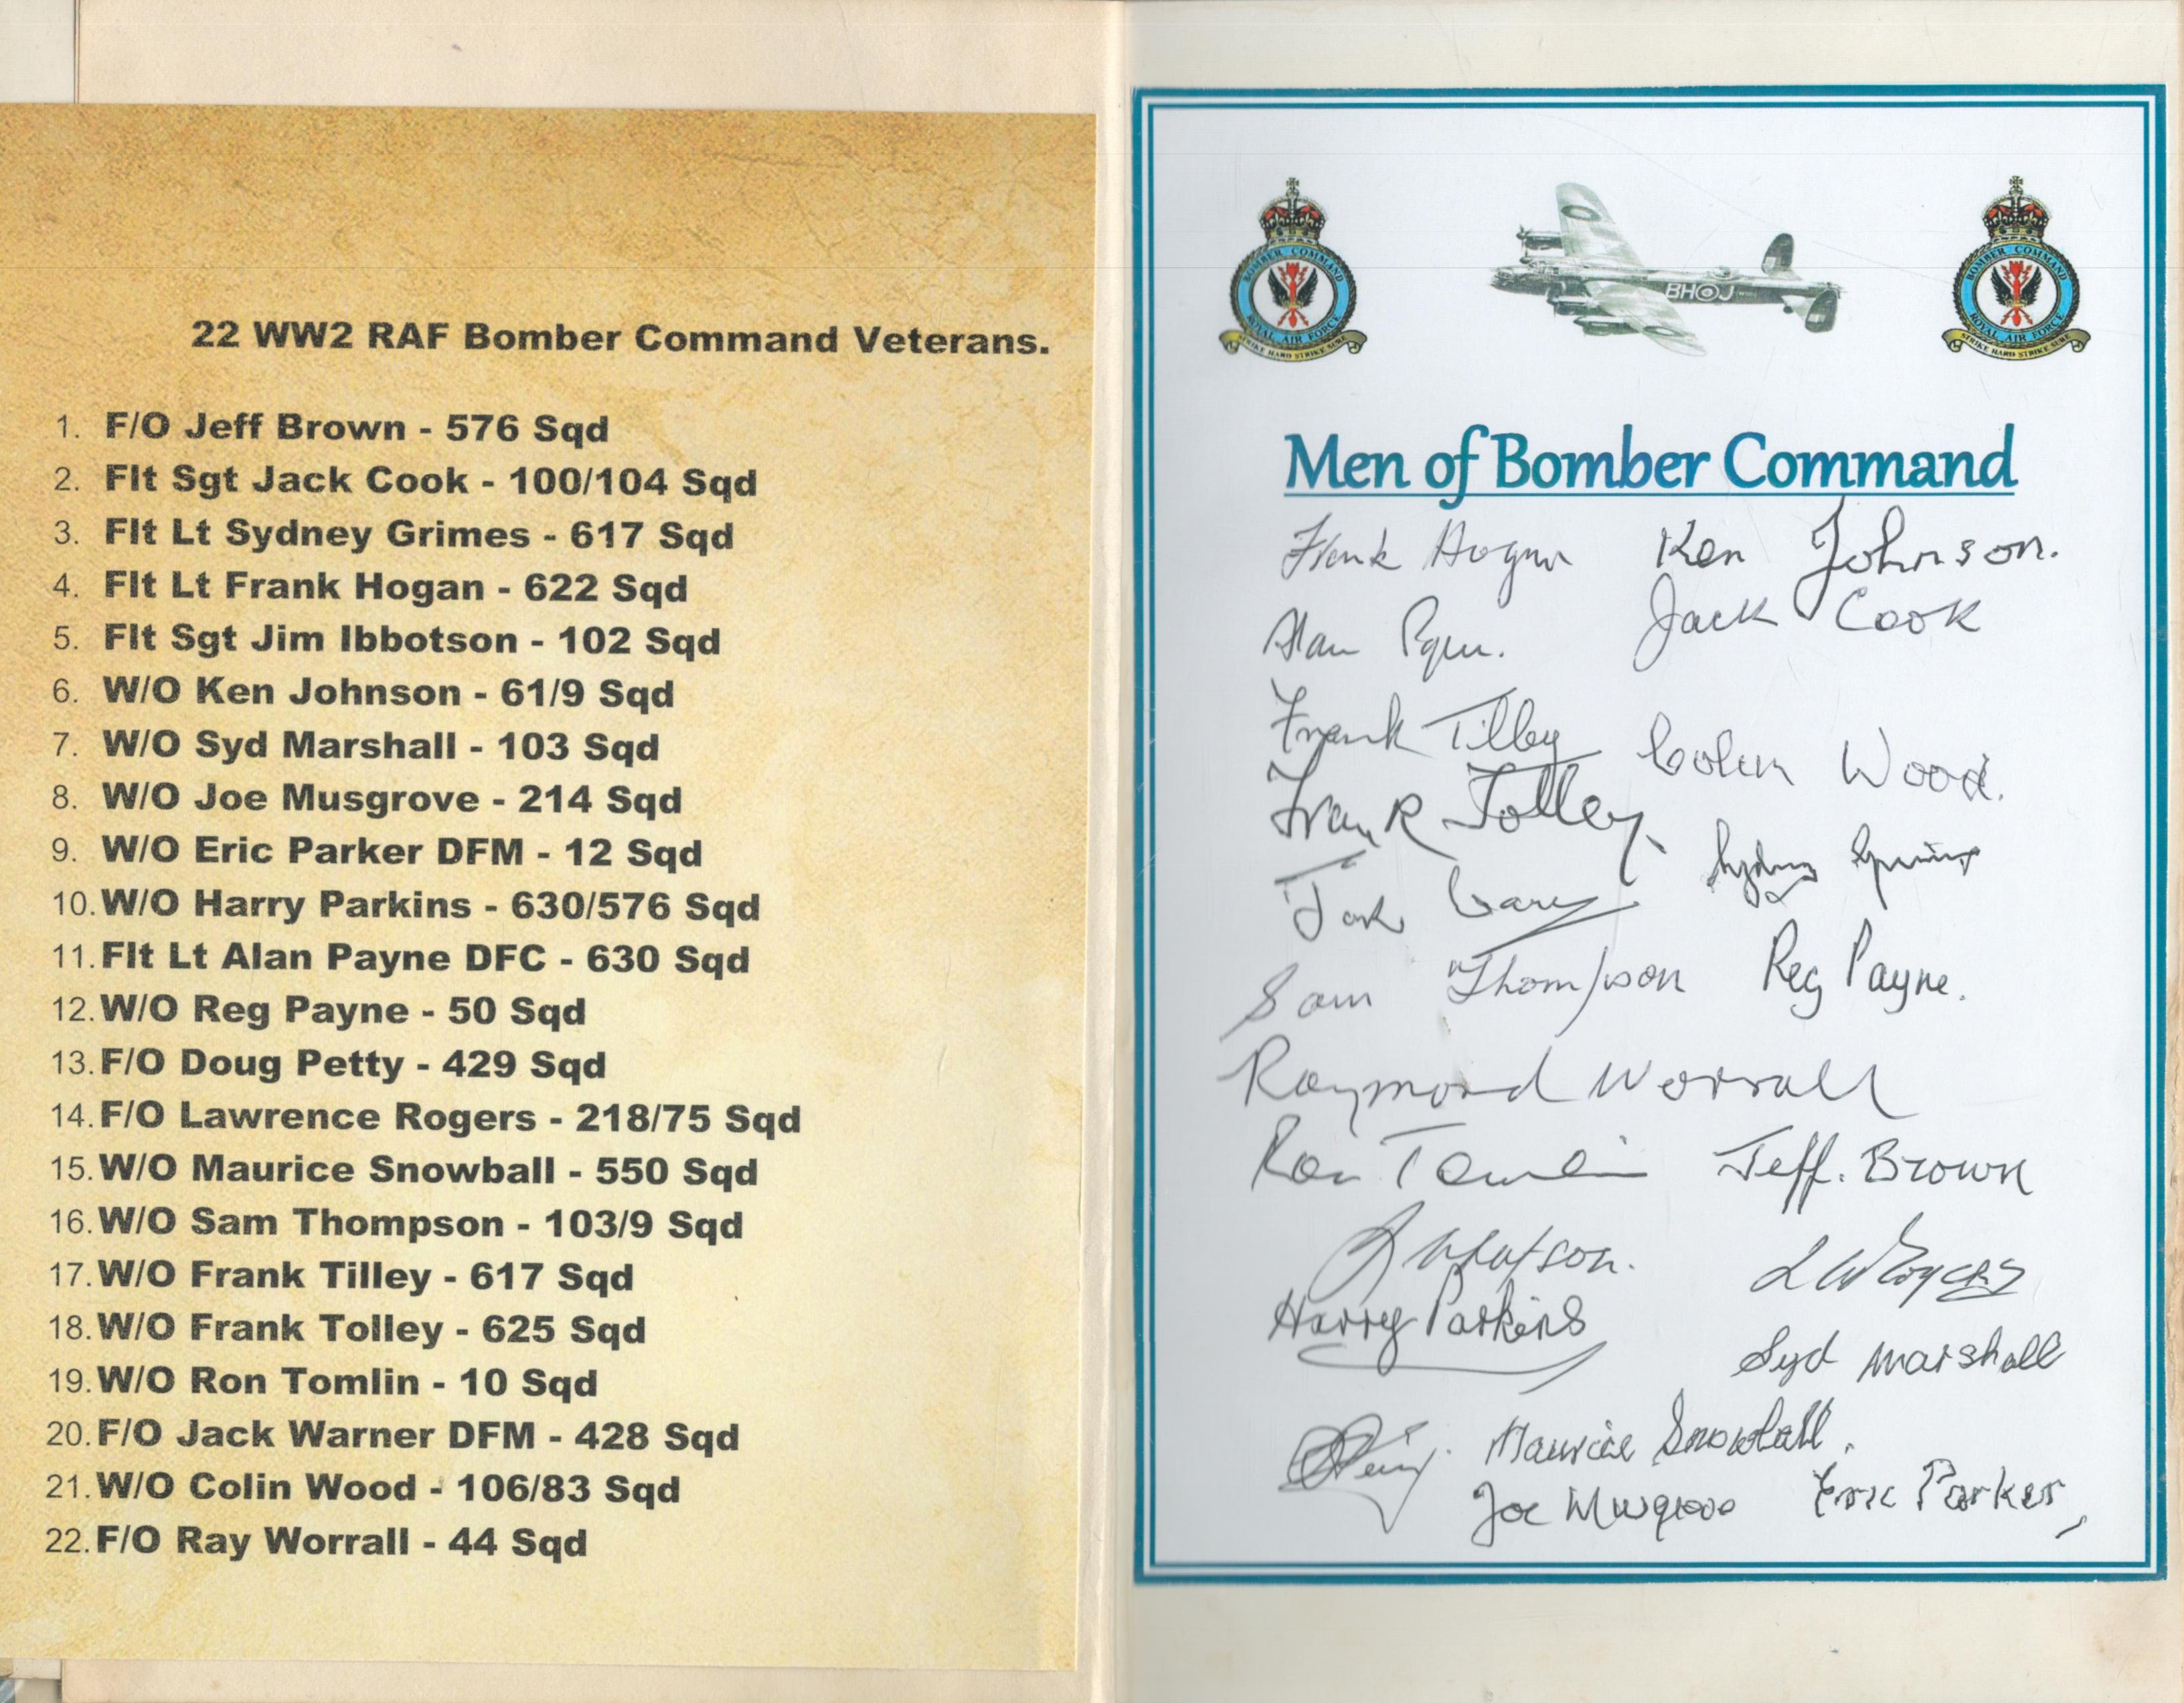 22 WW2 RAF Bomber Command Veterans.
1. F/O Jeff Brown - 576 Sqd
2. Flt Sgt Jack Cook - 100/104 Sqd
3. Flt Lt Sydney Grimes - 617 Sqd
4. Flt Lt Frank Hogan - 622 Sqd
5. Flt Sgt Jim Ibbotson - 102 Sqd
6. W/O Ken Johnson - 61/9 Sqd
7. W/O Syd Marshall - 103 Sqd
8. W/O Joe Musgrove - 214 Sqd
9. W/O Eric Parker DFM - 12 Sqd
10. W/O Harry Parkins - 630/576 Sqd
11. Flt Lt Alan Payne DFC - 630 Sqd
12. W/O Reg Payne - 50 Sqd
13. F/O Doug Petty - 429 Sqd
14. F/O Lawrence Rogers - 218/75 Sqd
15. W/O Maurice Snowball - 550 Sqd
16. W/O Sam Thompson - 103/9 Sqd
17. W/O Frank Tilley - 617 Sqd
18. W/O Frank Tolley - 625 Sqd
19. W/O Ron Tomlin - 10 Sqd
20. F/O Jack Warner DFM - 428 Sqd
21. W/O Colin Wood - 106/83 Sqd
22. F/O Ray Worrall - 44 Sqd
BOMBER COMMAND
ROYAL AIR FORCE
STRIKE HARD STRIKE SURE
BH J
BOMBER COMMAND
ROYAL AIR FORCE
STRIKE HARD STRIKE SURE
Men of Bomber Command
Frank Hogan Ken Johnson.
Alan Payne. Jack Cook
Frank Tilley Colin Wood.
Frank Tolley Sydney Grimes
Jack
Sam Thompson Reg Payne.
Raymond Worrall
Ron Tomlin Jeff. Brown
J Ibbotson. L W Rogers
Harry Parkins
Syd Marshall
Maurice Snowball.
Joe Musgrove Eric Parker